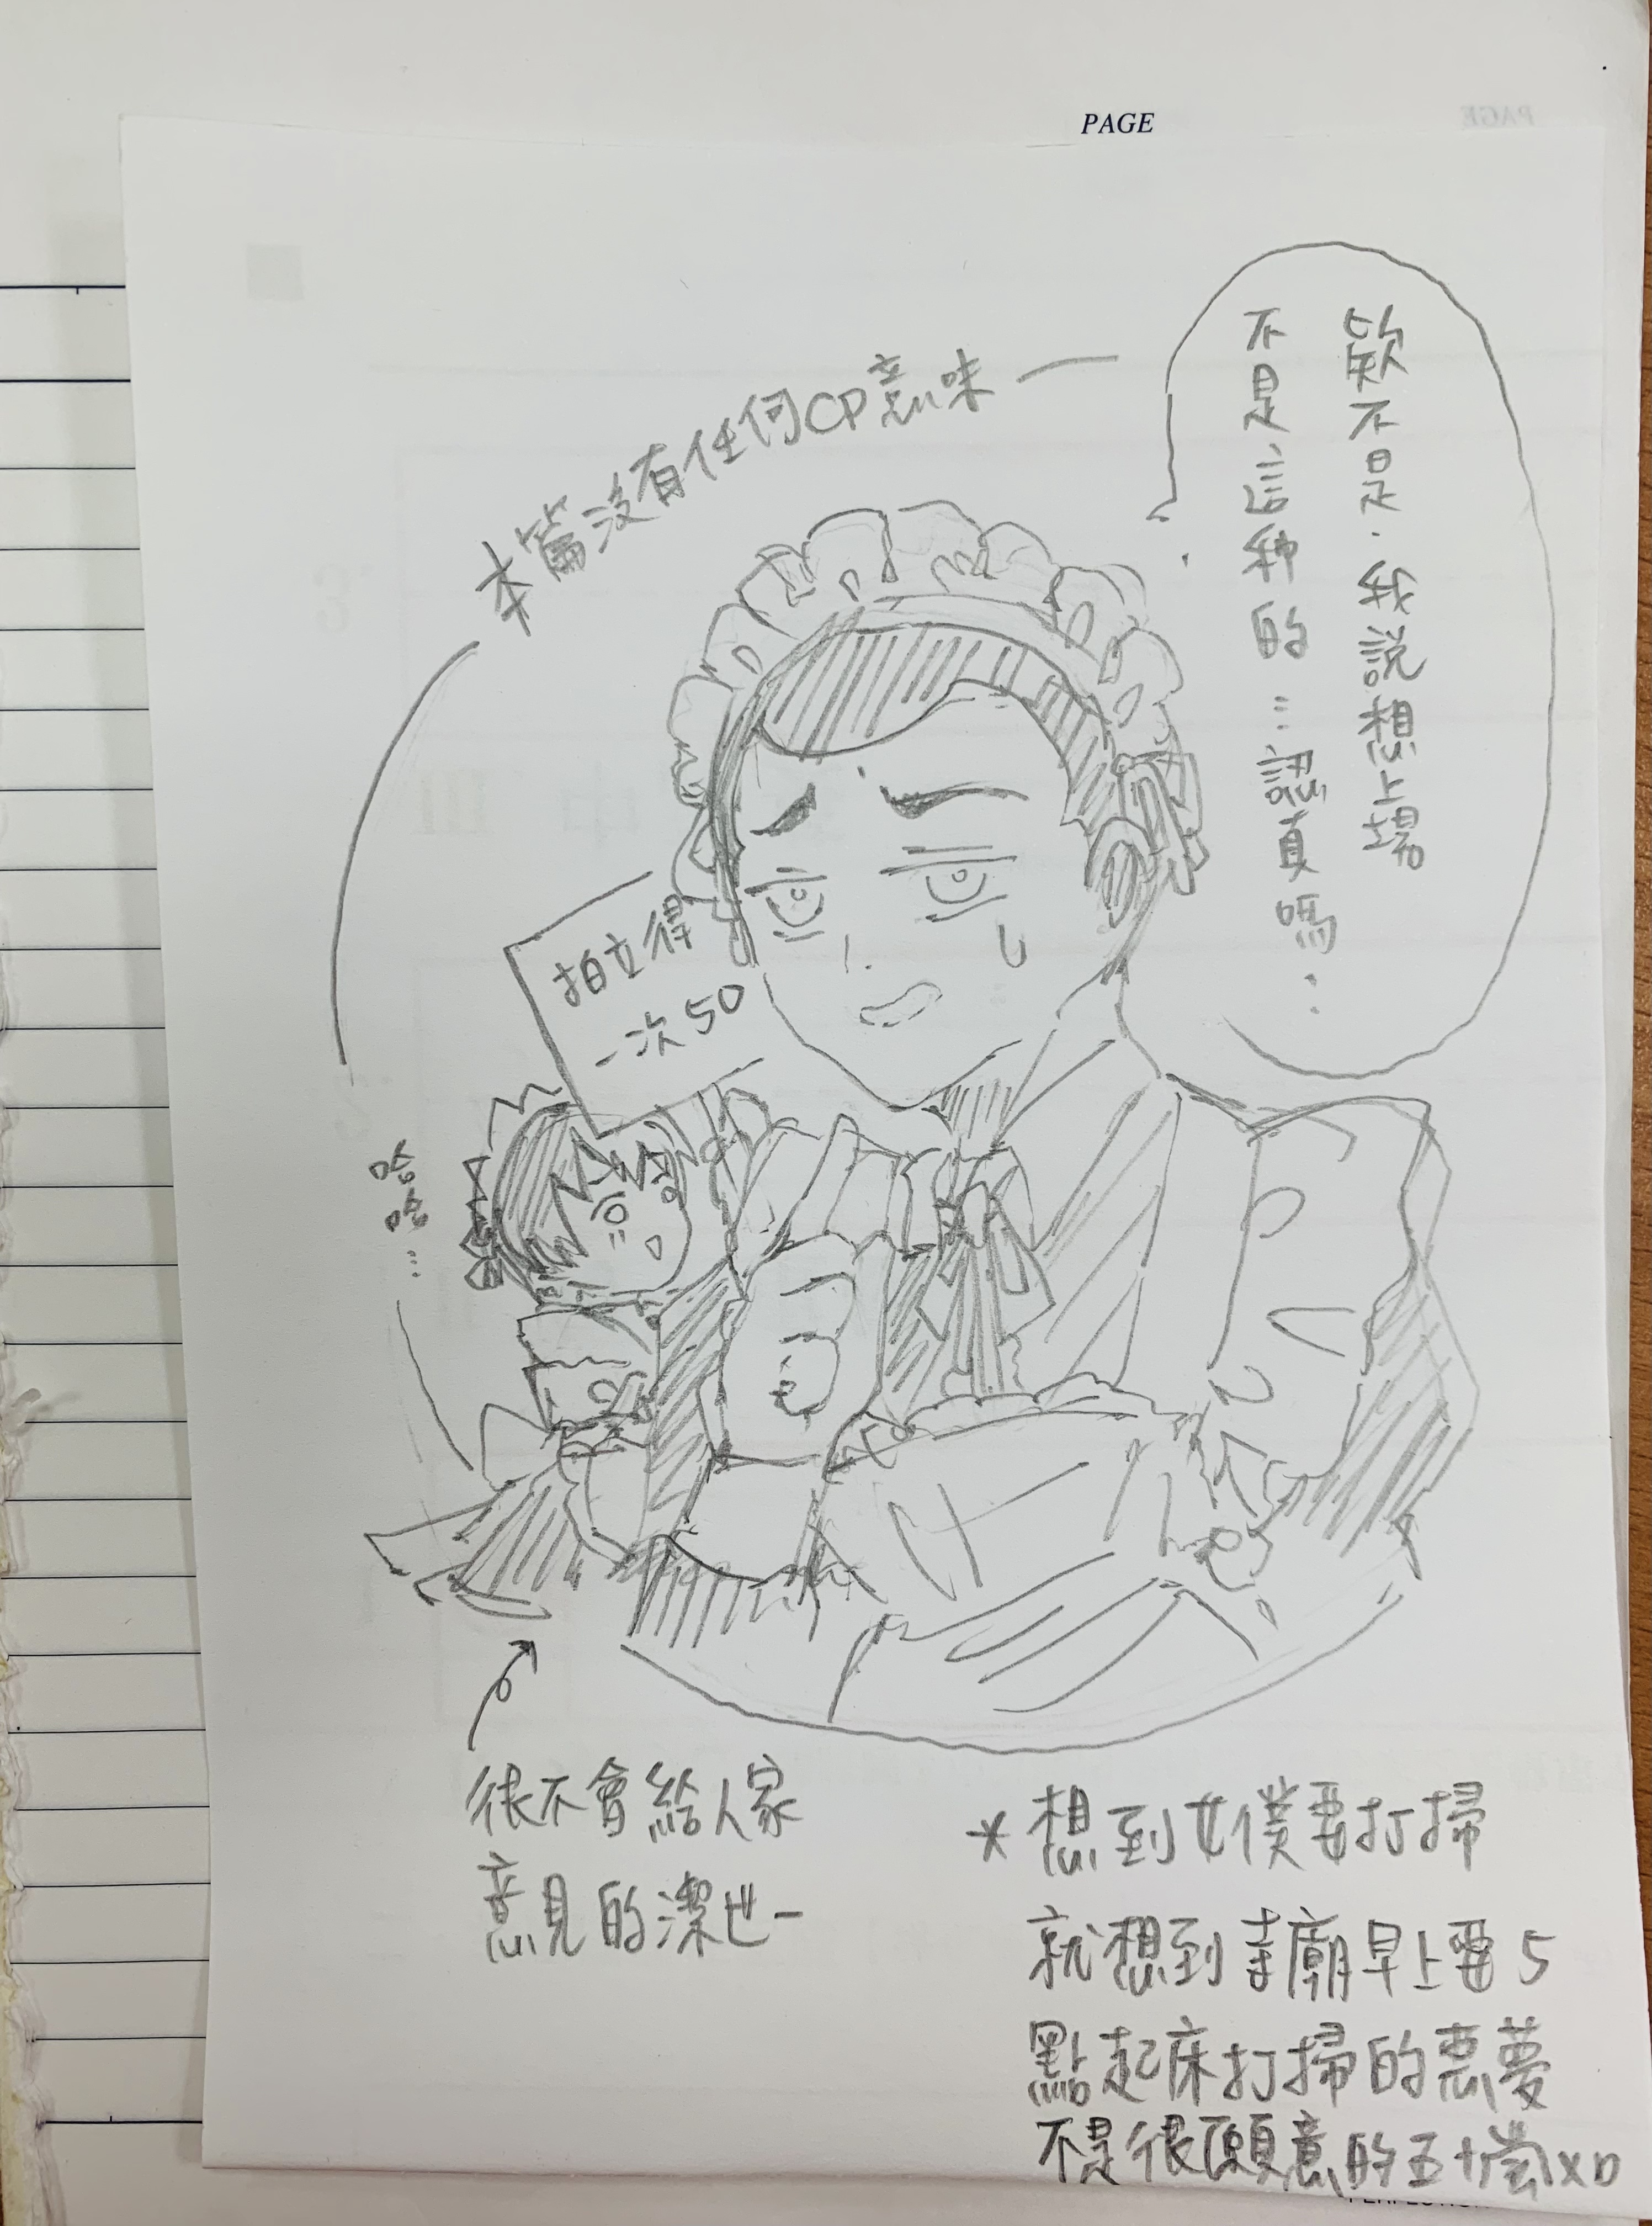 PAGE
欸不是．我說想上場
不是這种的…認真嗎…
本篇沒有任何CP意味
拍立得
一次50
哈哈…
很不會給人家
意見的潔世一
＊想到女僕要打掃
就想到寺廟早上要5
點起床打掃的惡夢
不是很願意的五十嵐XD